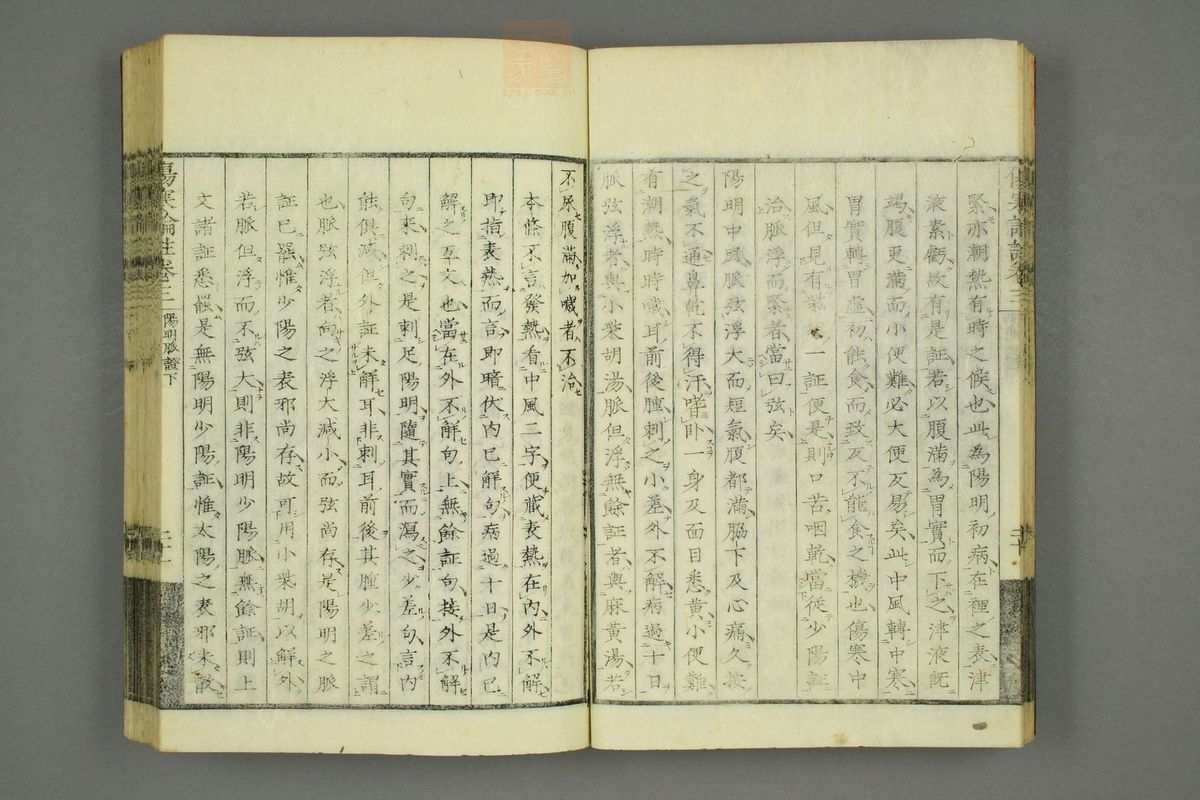 緊亦潮熱有時之候也此為陽明初病在裡之表津
液素虧故有是証若以腹滿為胃實而下之津液旣
竭腹更滿而小便難必大便反易矣此中風轉中寒
胃實轉胃虛初能食而致反不能食之機也傷寒中
風但見有柴一証便是則口苦咽乾當從少陽証
治脈浮而緊者當曰弦矣
陽明中風脈弦浮大而短氣腹都滿脇下及心痛久按
之氣不通鼻乾不得汗嗜卧一身及面目悉黃小便難
有潮熱時時噦耳前後腫刺之小差外不解病過十日
脈弦浮者與小柴胡湯脈但浮無餘証者與麻黃湯若
不尿腹滿加噦者不治
本條不言發熱看中風二字便藏表熱在內外不解
即指表熱而言即暗伏內已解句病過十日是內已
解之互文也當在外不解句上無餘証句接外不解
句来刺之是刺足陽明隨其實而瀉之少差句言內
能俱減但外証未解耳非刺耳前後其腫少差之謂
也脈弦浮者向之浮大減小而弦尚存是陽明之脈
証已罷惟少陽之表邪尚存故可用小柴胡以解外
若脈但浮而不弦大則非陽明少陽脈無餘証則上
文諸証悉罷是無陽明少陽証惟太陽之表邪未散
傷寒論註卷三
陽明脈證下
二十一
zysj.com.cn